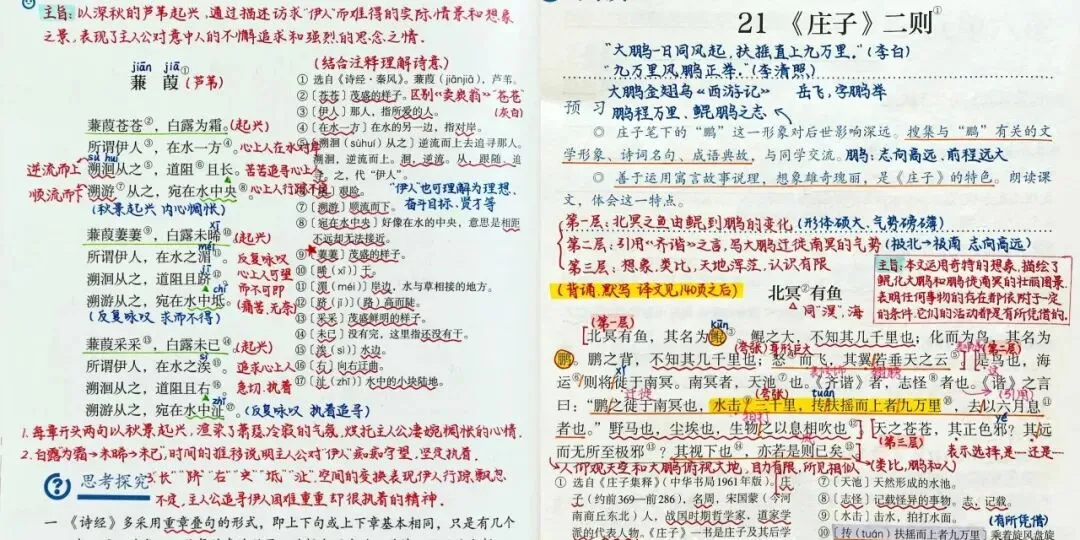 主旨：以深秋的芦苇起兴，通过描述访求“伊人”而难得的实际情景和想象
之景，表现了主人公对意中人的不懈追求和强烈的思念之情。
jiān jiā
蒹葭①(芦苇)
蒹葭苍苍②，白露为霜。(起兴)
所谓伊人③，在水一方④。心上人在水对岸
逆流而上 sù huí
溯洄从之⑤，道阻且长。苦苦追寻心上人
顺流而下
溯游⑦从之，宛在水中央⑧。心上人行踪不定
(秋景起兴 内心惆怅)
xī
蒹葭萋萋⑨，白露未晞⑩(起兴)
méi
所谓伊人，在水之湄⑪。反复咏叹
jī
溯洄从之，道阻且跻⑫。心上人可望
chí
而不可即
溯游从之，宛在水中坻。(痛苦、无奈)
(反复咏叹 求而不得)
蒹葭采采⑬，白露未已⑭。(起兴)
sì
所谓伊人，在水之涘⑮。追求心上人
溯洄从之，道阻且右⑯。急切、执着
zhǐ
溯游从之，宛在水中沚⑰。(反复咏叹 执着追寻)
1.每章开头两句以秋景起兴，渲染了萧瑟冷寂的气氛，烘托主人公凄婉惆怅的心情。
2.白露为霜→未晞→未已”，时间的推移说明主人公对“伊人”痴痴守望、坚定执着。
3.“长”“跻”“右”“央”“坻”“沚”空间的变换表现伊人行踪飘忽
不定，主人公追寻伊人困难重重却很执着的精神。
思考探究
一 《诗经》多采用重章叠句的形式，即上下句或上下章基本相同，只是有几个
(结合注释理解诗意)
① 选自《诗经·秦风》。蒹葭（jiānjiā），芦苇。
② 〔苍苍〕茂盛的样子。区别《卖炭翁》“苍苍”
(灰白)
③ 〔伊人〕那人，指所爱的人。
④ 〔在水一方〕在水的另一边，指对岸。
⑤ 〔溯洄（sùhuí）从之〕逆流而上去追寻那人。
溯洄，逆流而上。洄，逆流。从，跟随、追
寻。之，代“伊人”。
艰险。“伊人”也可理解为理想、
奋斗目标、贤才等
⑦ 〔溯游〕顺流而下。
⑧ 〔宛在水中央〕好像在水的中央，意思是相距
不远却无法接近。
⑨ 〔萋萋〕茂盛的样子。
⑩ 〔晞（xī）〕干。
⑪ 〔湄（méi）〕岸边，水与草相接的地方。
⑫ 〔跻（jī）〕（路）高而陡。
⑬ 〔采采〕茂盛鲜明的样子。
⑭ 〔未已〕没有完，这里指还没有干。
⑮ 〔涘（sì）〕水边。
⑯ 〔右〕向右迂曲。
⑰ 〔沚（zhǐ）〕水中的小块陆地。
21 《庄子》二则①
“大鹏一日同风起，扶摇直上九万里。”(李白)
“九万里风鹏正举。”(李清照)
大鹏金翅鸟《西游记》 岳飞，字鹏举
预习 鹏程万里、鲲鹏之志
◎ 庄子笔下的“鹏”这一形象对后世影响深远。搜集与“鹏”有关的文
学形象、诗词名句、成语典故，与同学交流。鹏：志向高远、前程远大
◎ 善于运用寓言故事说理，想象雄奇瑰丽，是《庄子》的特色。朗读课
文，体会这一特点。
第一层：北冥之鱼由鲲到鹏的变化(形体硕大、气势磅礴)
第二层：引用《齐谐》之言，写大鹏迁徙南冥的气势(极北→极南 志向高远)
第三层：想象，类比，天地浑茫，认识有限
主旨：本文运用奇特的想象，描绘了
鲲化大鹏和大鹏徙南冥的壮丽图景，
表明任何事物的存在都依附于一定
的条件，它们的活动都是有所凭借的。
(背诵、默写 译文见140页之后)
北冥②有鱼
同“溟”，海
(第一层)
kūn
北冥有鱼，其名为鲲③。鲲之大，不知其几千里也；化而为鸟，其名为
(夸张)身形巨大
(第二层)
鹏。鹏之背，不知其几千里也；怒④而飞，其翼若垂天之云⑤。是鸟也，海
xǐ
运⑥则将徙于南冥。南冥者，天池⑦也。《齐谐》者，志怪⑧者也。《谐》之言
迁徙 (夸张) tuán (引用)
曰：“鹏之徙于南冥也，水击⑨三千里，抟扶摇而上者九万里⑩，去以六月息⑪
yé
者也。”野马也，尘埃也，生物之以息相吹也⑫。天之苍苍，其正色邪？其远
(第三层)
而无所至极邪⑬？其视下也⑭，亦若是则已矣。表示选择，是…还是…
人仰观天空和大鹏俯视大地，目力有限，所见相似(类比，鹏和人)
① 选自《庄子集释》（中华书局1961年版）。庄
子（约前369—前286），名周，宋国蒙（今河
南商丘东北）人，战国时期哲学家，道家学
派的代表人物。《庄子》一书是庄子及其后学
⑦ 〔天池〕天然形成的水池。
⑧ 〔志怪〕记载怪异的事物。志，记载。
⑨ 〔水击〕击水，拍打水面。
(有所凭借)
⑩ 〔抟（tuán）扶摇而上者九万里〕乘着旋风盘旋